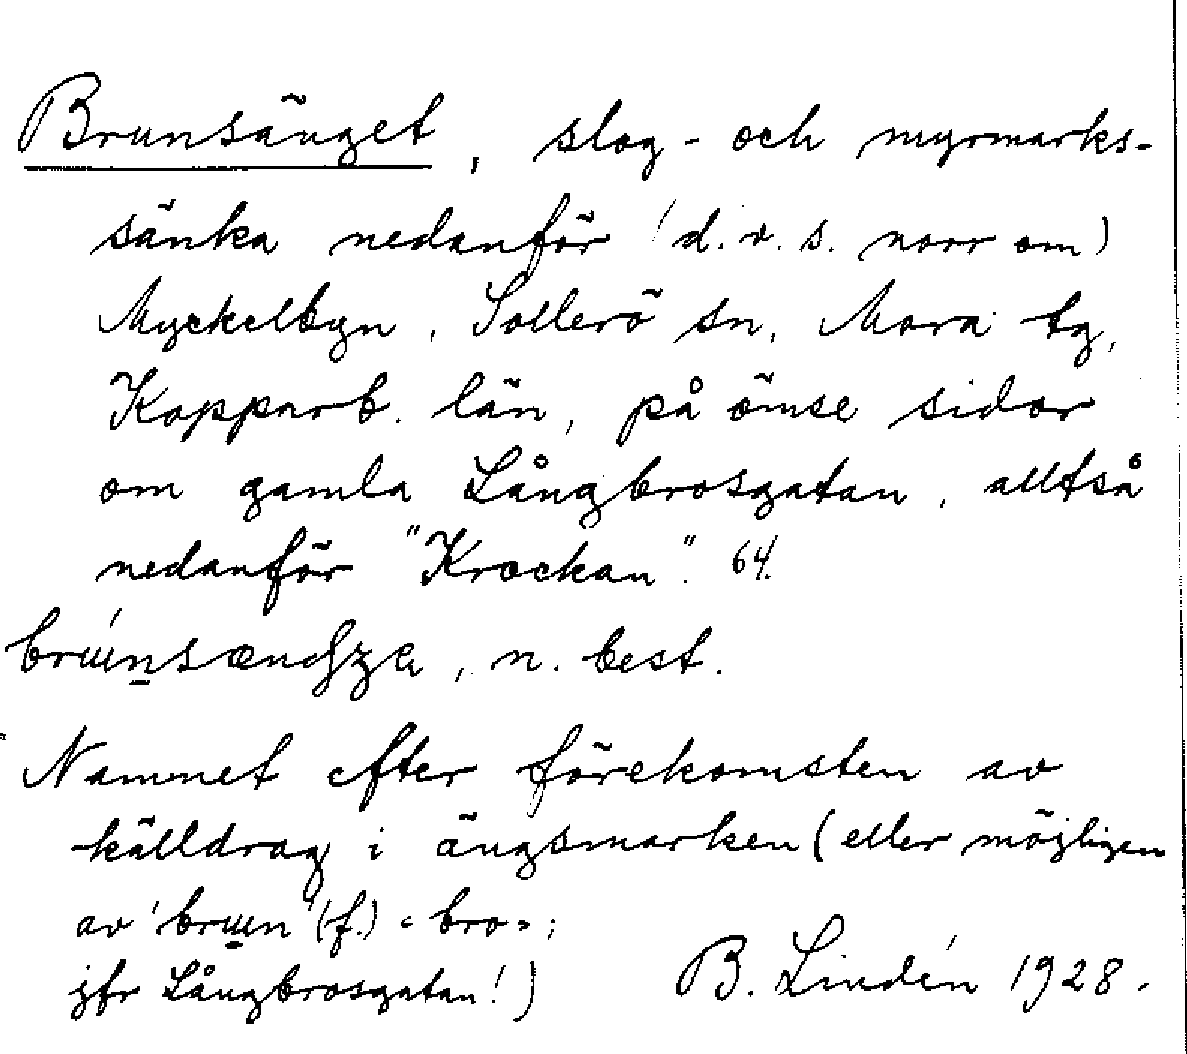 Brunsänget, slog- och myrmarks-
sänka nedanför (d.v.s. norr om)
Myckelbyn, Sollerö sn, Mora tg,
Kopparb. län, på ömse sidor
om gamla Långbrosgatan, alltså
nedanför "Krockan". 64.
n. best.
Namnet efter förekomsten av
källdrag i ängsmarken (eller möjligen
av (f.) «bro»;
jfr Långbrosgatan!) B. Lindén 1928.